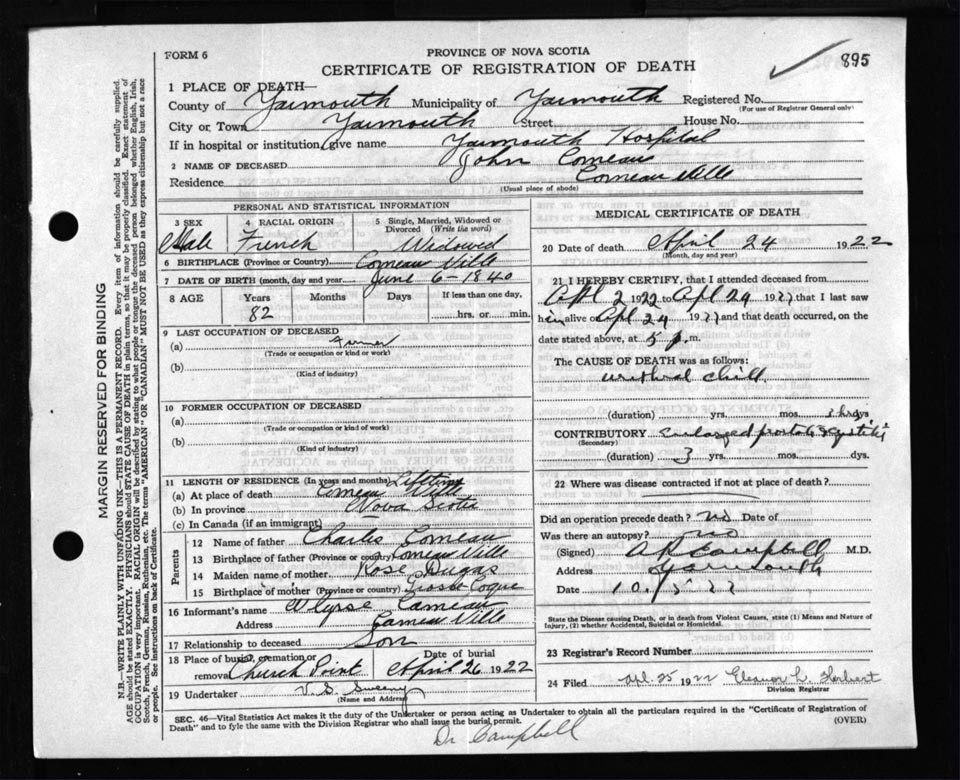 FORM 6
PROVINCE OF NOVA SCOTIA
CERTIFICATE OF REGISTRATION OF DEATH
895
1 PLACE OF DEATH—
County of Yarmouth Municipality of Yarmouth Registered No.
(For use of Registrar General only)
City or Town Yarmouth Street House No.
If in hospital or institution, give name Yarmouth Hospital
2 NAME OF DECEASED John Comeau
Residence Comeau Ville
(Usual place of abode)
PERSONAL AND STATISTICAL INFORMATION
3 SEX 4 RACIAL ORIGIN 5 Single, Married, Widowed or Divorced (Write the word)
Male French Widowed
6 BIRTHPLACE (Province or Country) Comeau Ville
7 DATE OF BIRTH (month, day and year) June 6-1840
8 AGE Years Months Days If less than one day,
82 hrs. or min.
9 LAST OCCUPATION OF DECEASED
(a) Farmer
(Trade or occupation or kind or work)
(b)
(Kind of industry)
10 FORMER OCCUPATION OF DECEASED
(a)
(Trade or occupation or kind of work)
(b)
(Kind of industry)
11 LENGTH OF RESIDENCE (In years and months) Lifetime
(a) At place of death Comeau Ville
(b) In province Nova Scotia
(c) In Canada (if an immigrant)
Parents
12 Name of father Charles Comeau
13 Birthplace of father (Province or country) Comeau Ville
14 Maiden name of mother Rose Dugas
15 Birthplace of mother (Province or country) Grosse Coque
16 Informant's name Ulysse Comeau
Address Comeau Ville
17 Relationship to deceased Son
18 Place of burial, cremation or removal Church Point Date of burial April 26 1922
19 Undertaker V. S. Sweeny
(Name and Address)
MEDICAL CERTIFICATE OF DEATH
20 Date of death April 24 1922
(Month, day and year)
21 I HEREBY CERTIFY, that I attended deceased from
Apl 2 1922 to Apl 24 1922 that I last saw
him alive on Apl 24 1922 and that death occurred, on the
date stated above, at 5 p.m.
The CAUSE OF DEATH was as follows:
urethral chill
(duration) yrs. mos. dys
CONTRIBUTORY enlarged prostate & cystitis
(Secondary)
(duration) 3 yrs. mos. dys.
22 Where was disease contracted if not at place of death?
Did an operation precede death? no Date of
Was there an autopsy? no
(Signed) A R Campbell M.D.
Address Yarmouth
Date 10/5 22
State the Disease causing Death, or in death from Violent Causes, state (1) Means and Nature of Injury, (2) whether Accidental, Suicidal or Homicidal.
23 Registrar's Record Number
24 Filed Apl. 25 1922 Eleanor L. Herbert
Division Registrar
SEC. 46—Vital Statistics Act makes it the duty of the Undertaker or person acting as Undertaker to obtain all the particulars required in the "Certificate of Registration of
Death" and to fyle the same with the Division Registrar who shall issue the burial permit.
(OVER)
Dr Campbell
MARGIN RESERVED FOR BINDING
N.B.—WRITE PLAINLY WITH UNFADING INK—THIS IS A PERMANENT RECORD. Every item of information should be carefully supplied.
AGE should be stated EXACTLY. PHYSICIANS should STATE CAUSE OF DEATH in plain terms, so that it may be properly classified. Exact statement of
OCCUPATION is very important. RACIAL ORIGIN will be described by stating to what people or tongue the deceased person belonged whether English, Irish,
Scotch, French, German, Russian, Ruthenian, etc. The terms "AMERICAN" OR "CANADIAN" MUST NOT BE USED as they express citizenship but not a race
or people. See instructions on back of Certificate.